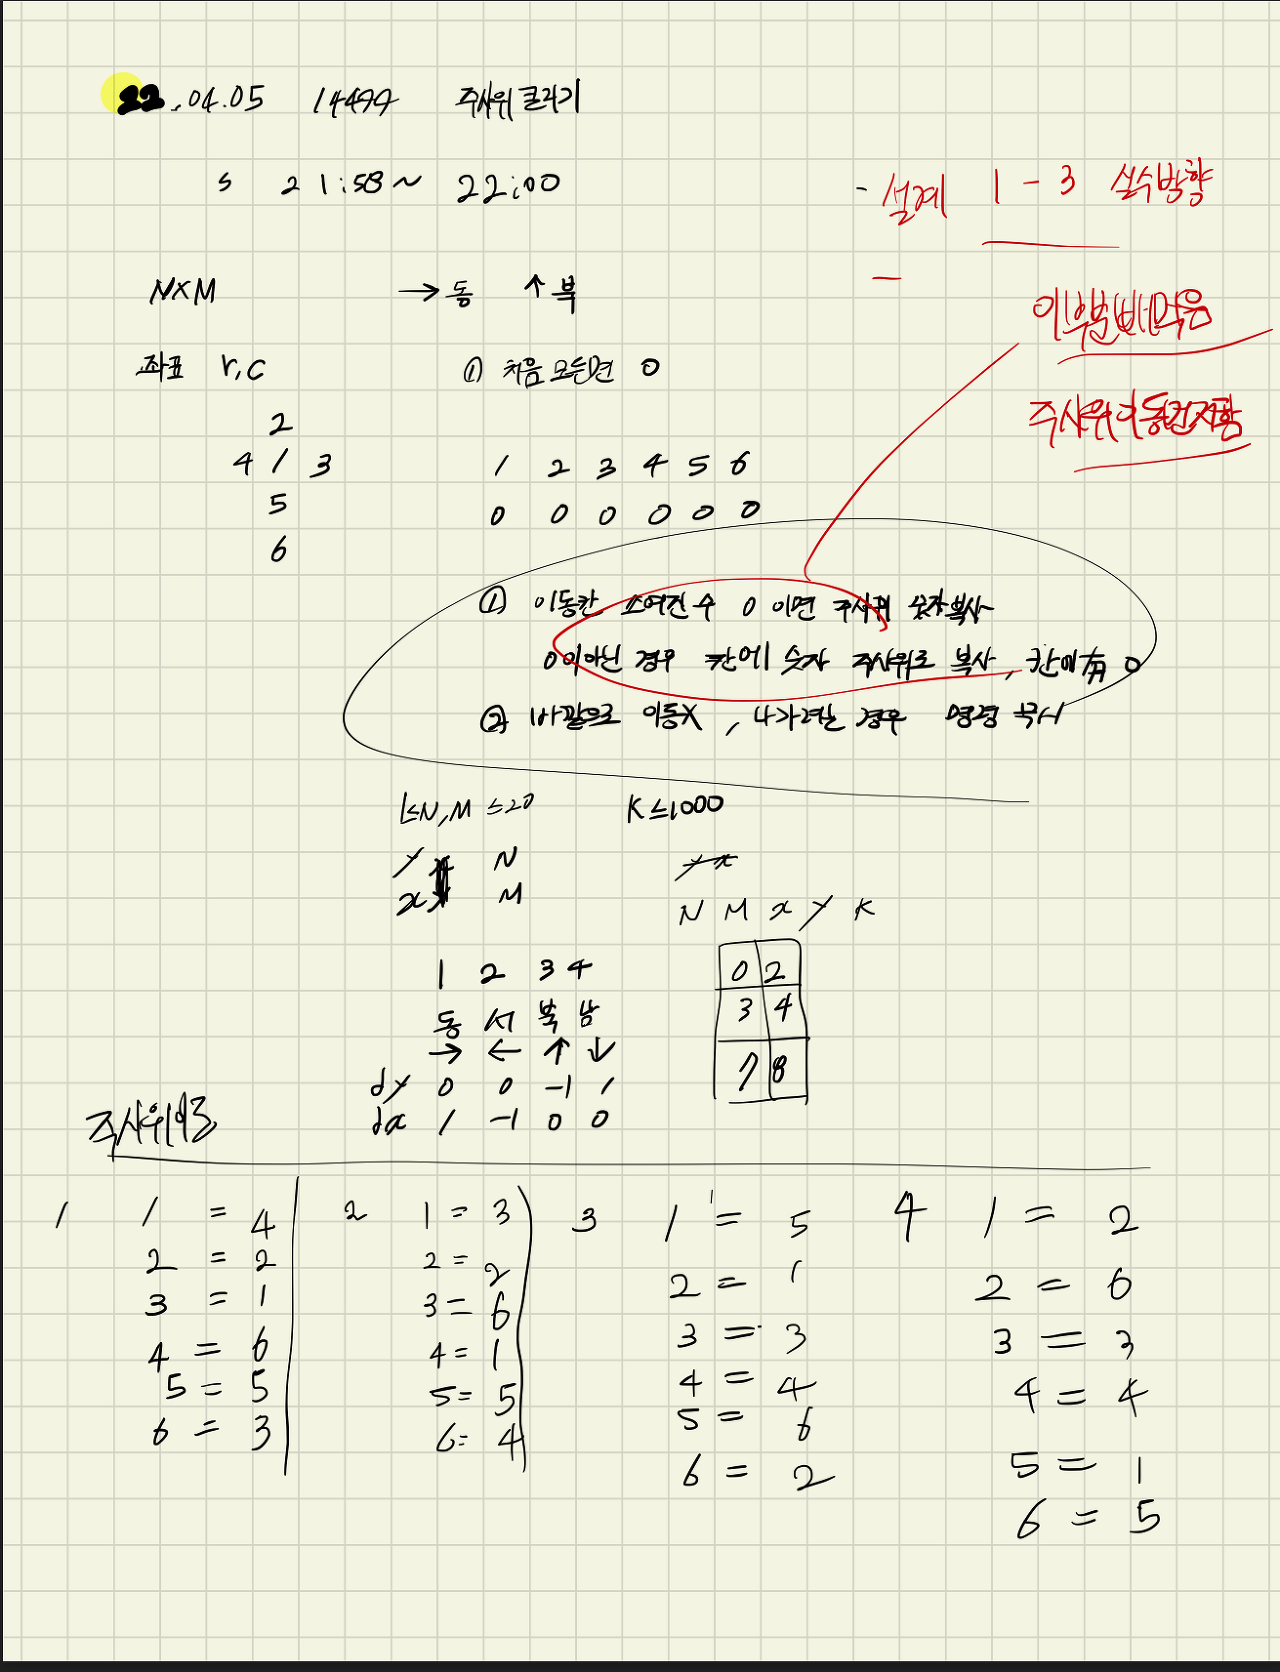 22.04.05 14499 주사위 굴리기
s 21:58~ 22:00
- 설계 1 - 3 실수방향
-
N×M → 동 ↑ 북
이부분 빼먹음
좌표 r,c ① 처음 모든면 0
주사위 이동전저함
2
4 1 3
5
6
1 2 3 4 5 6
0 0 0 0 0 0
① 이동칸 쓰여진 수 0 이면 주사위 숫자복사
0이아닌 경우 칸에 숫자 주사위로 복사, 칸에有 0
② 바깥으로 이동X, 나가려는 경우 명령 무시
1≤N,M ≤20 K≤1000
y N
x M
y x
N M x y K
0 2
3 4
7 8
1 2 3 4
동 서 북 남
→ ← ↑ ↓
dy 0 0 -1 1
dx 1 -1 0 0
주사위이동
1
1 = 4
2 = 2
3 = 1
4 = 6
5 = 5
6 = 3
2
1 = 3
2 = 2
3 = 6
4 = 1
5 = 5
6 = 4
3
1 = 5
2 = 1
3 = 3
4 = 4
5 = 6
6 = 2
4
1 = 2
2 = 6
3 = 3
4 = 4
5 = 1
6 = 5